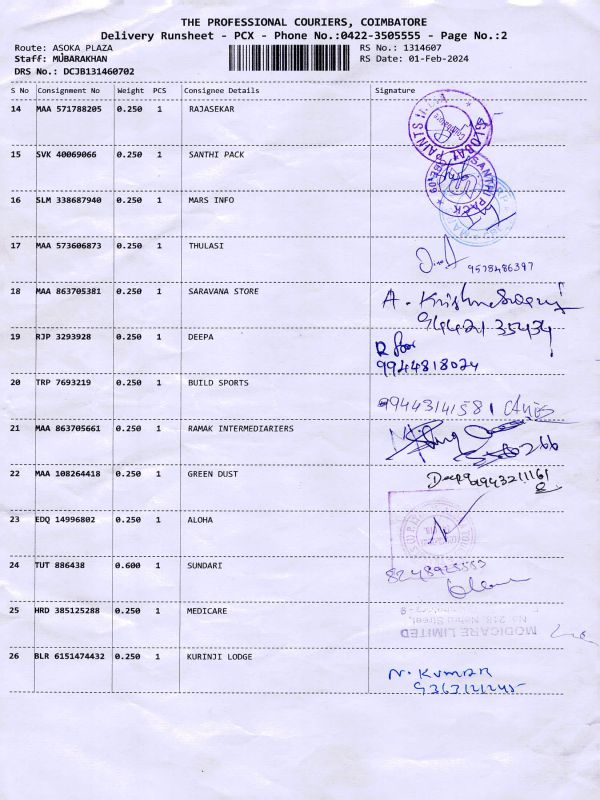 THE PROFESSIONAL COURIERS, COIMBATORE
Delivery Runsheet - PCX - Phone No.:0422-3505555 - Page No.:2
Route: ASOKA PLAZA RS No.: 1314607
Staff: MUBARAKHAN RS Date: 01-Feb-2024
DRS No.: DCJB131460702
S No Consignment No Weight PCS Consignee Details Signature
14 MAA 571788205 0.250 1 RAJASEKAR
GLOBAL PAINTS
15 SVK 40069066 0.250 1 SANTHI PACK
SANTHI PACK
16 SLM 338687940 0.250 1 MARS INFO
17 MAA 573606873 0.250 1 THULASI
9578486397
18 MAA 863705381 0.250 1 SARAVANA STORE
A.
94421 35434
19 RJP 3293928 0.250 1 DEEPA
9944818024
20 TRP 7693219 0.250 1 BUILD SPORTS
9944314158
21 MAA 863705661 0.250 1 RAMAK INTERMEDIARIERS
22 MAA 108264418 0.250 1 GREEN DUST
Deepa 9943211161
23 EDQ 14996802 0.250 1 ALOHA
24 TUT 886438 0.600 1 SUNDARI
25 HRD 385125288 0.250 1 MEDICARE
No.218, Nehru Street,
MODICARE LIMITED
26 BLR 6151474432 0.250 1 KURINJI LODGE
N. KUMAR